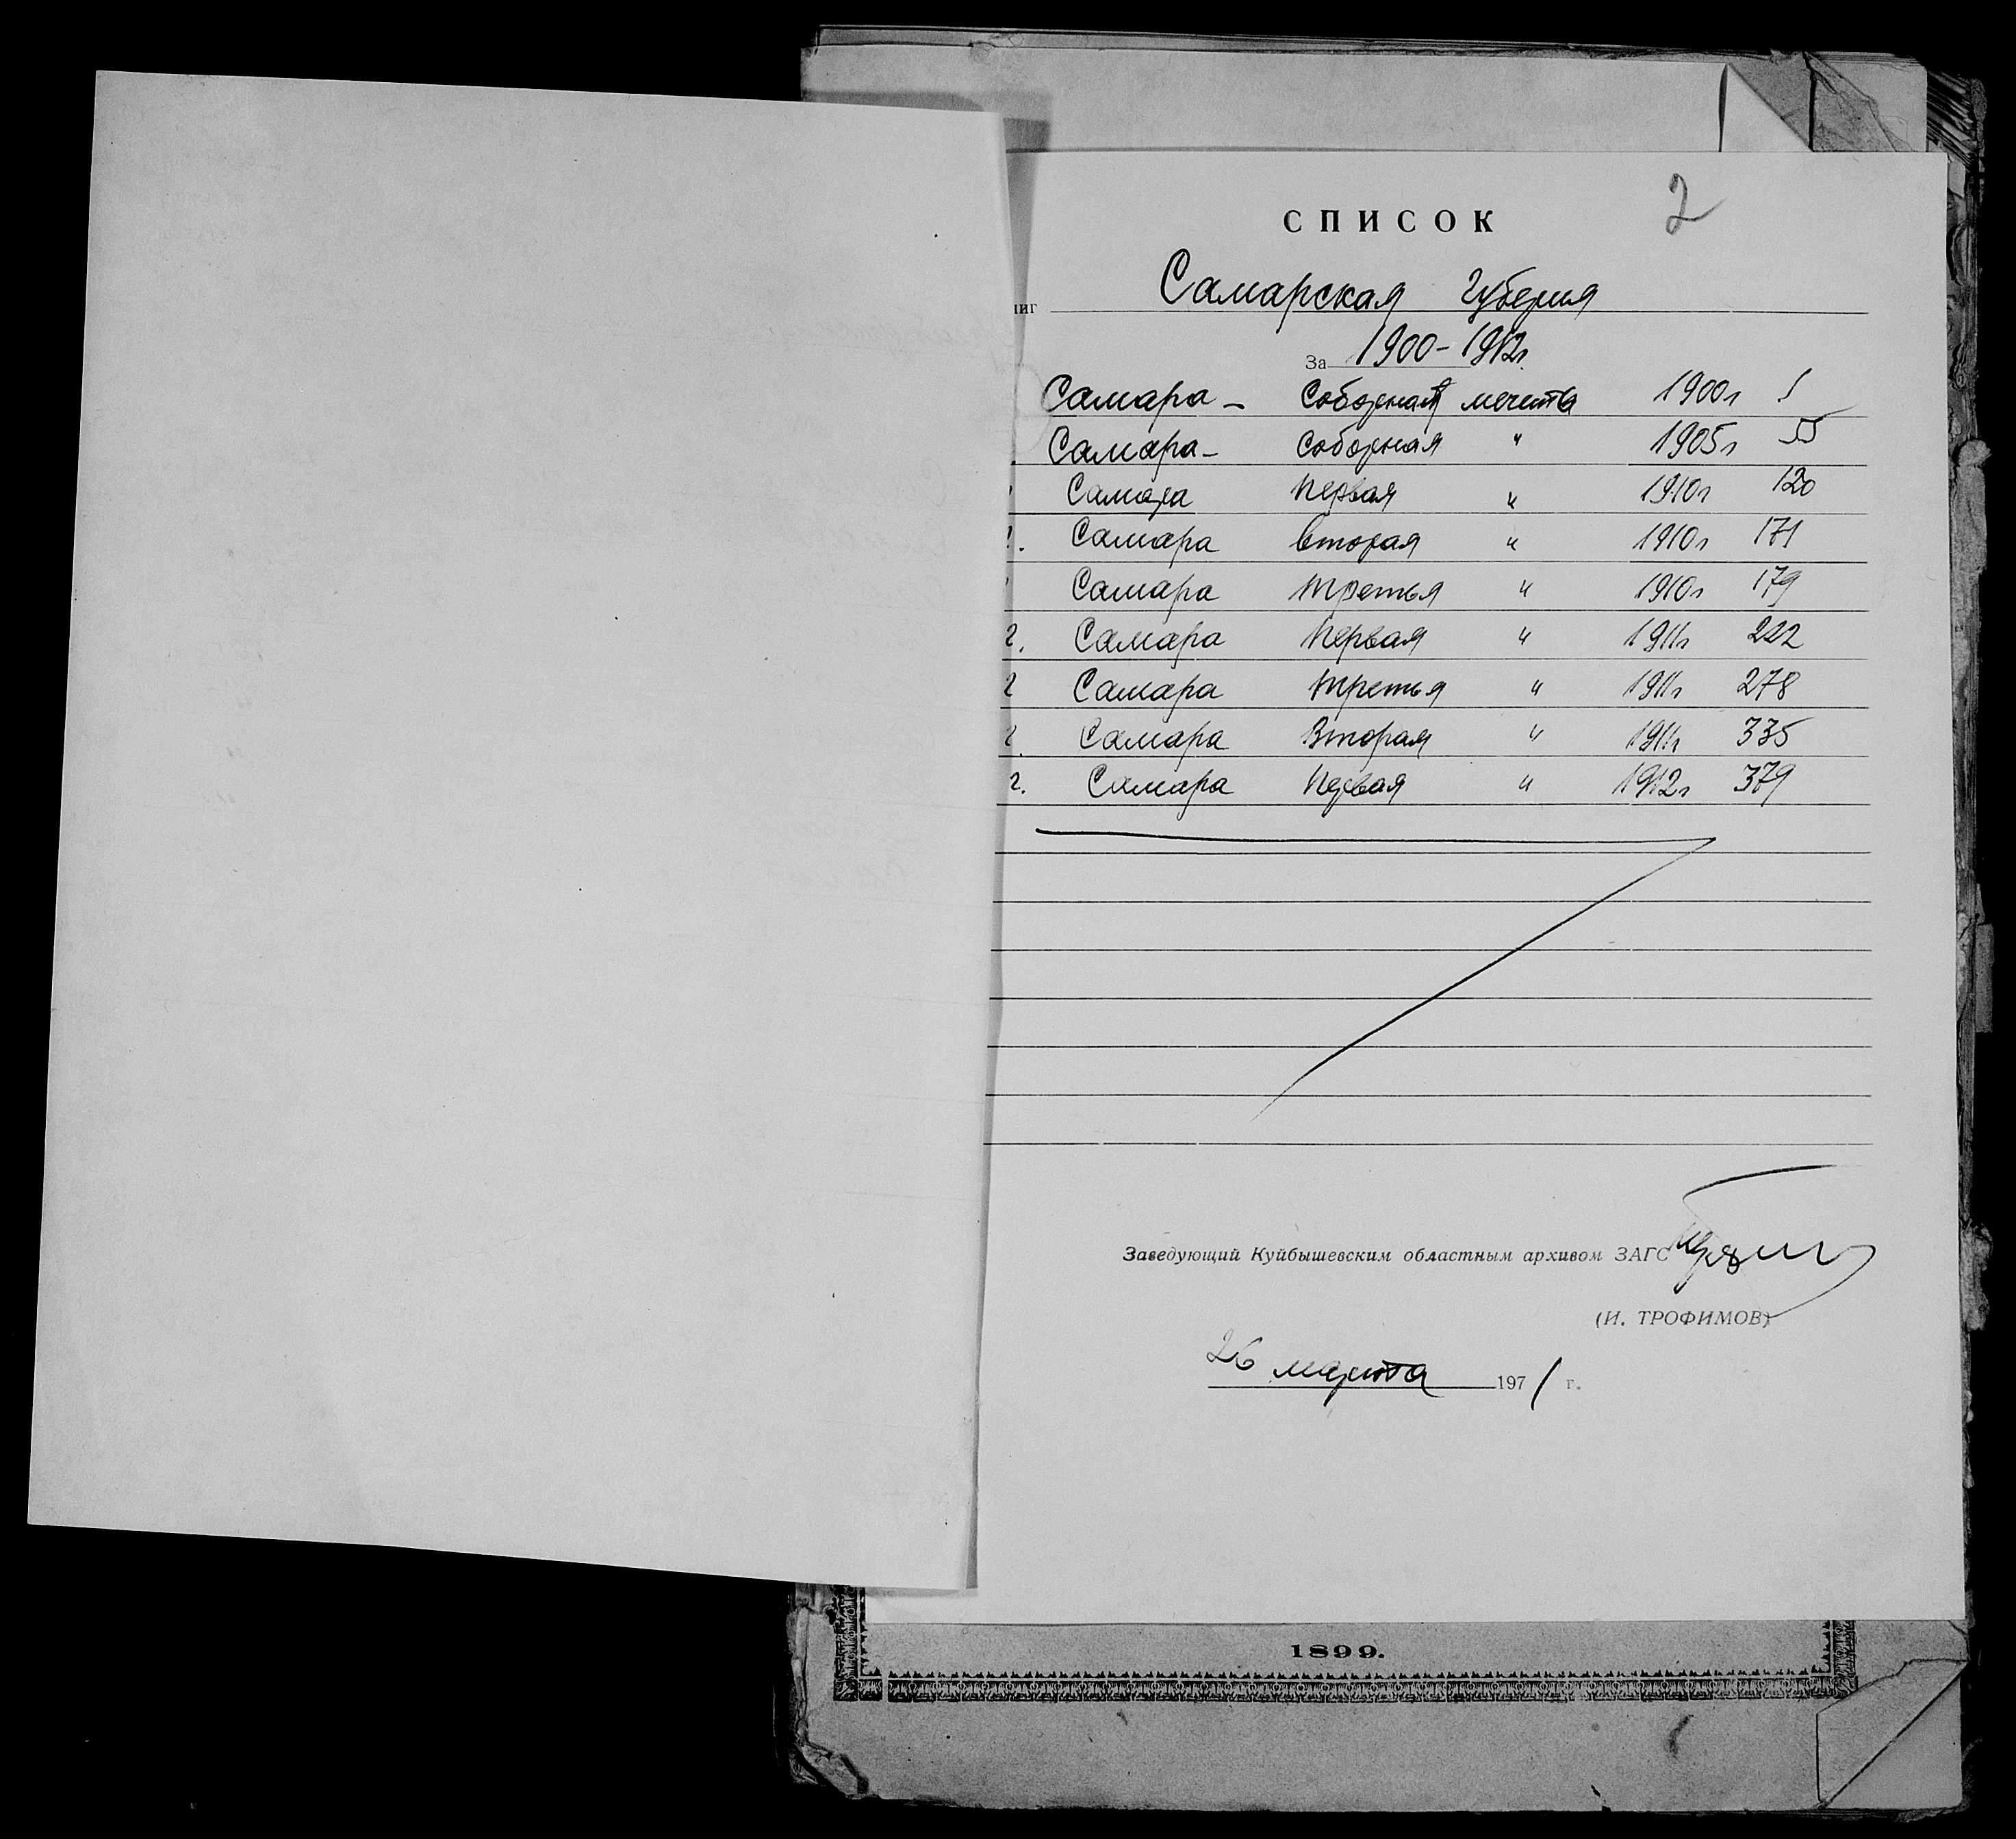 2
СПИСОК
ниг Самарская Губерния
За 1900-1912г.
Самара - Соборная мечеть 1900г 1
Самара - Соборная " 1905г 55
Самара Первая " 1910г 120
2. Самара Вторая " 1910г 171
Самара Третья " 1910г 179
2. Самара Первая " 1911г 222
2 Самара Третья " 1911г 278
2. Самара Вторая " 1911г 335
2. Самара Первая " 1912г 379
Заведующий Куйбышевским областным архивом ЗАГС
(И. ТРОФИМОВ)
26 марта 1971 г.
1899.